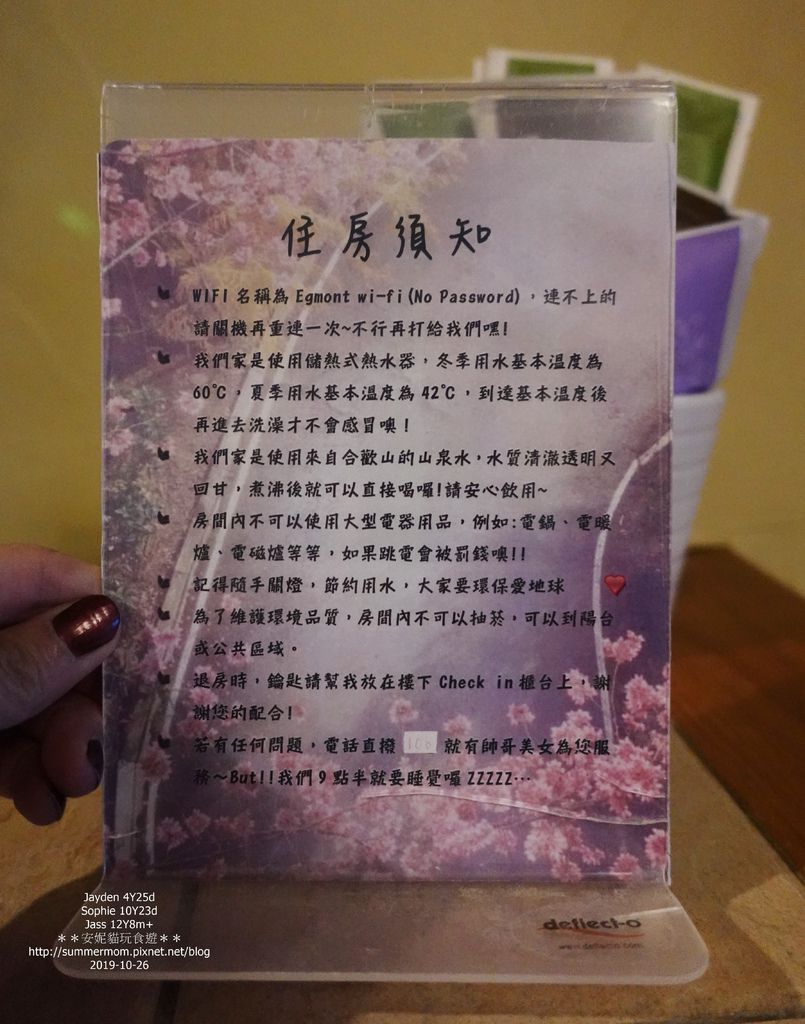 住房須知
WIFI 名稱為 Egmont wi-fi(No Password)，連不上的
請關機再重連一次~不行再打給我們嘿!
我們家是使用儲熱式熱水器，冬季用水基本溫度為
60℃，夏季用水基本溫度為 42℃，到達基本溫度後
再進去洗澡才不會感冒噢！
我們家是使用來自合歡山的山泉水，水質清澈透明又
回甘，煮沸後就可以直接喝囉!請安心飲用~
房間內不可以使用大型電器用品，例如:電鍋、電暖
爐、電磁爐等等，如果跳電會被罰錢噢!!
記得隨手關燈，節約用水，大家要環保愛地球
為了維護環境品質，房間內不可以抽菸，可以到陽台
或公共區域。
退房時，鑰匙請幫我放在樓下 Check in 櫃台上，謝
謝您的配合!
若有任何問題，電話直撥 106 就有帥哥美女為您服
務～But!!我們 9 點半就要睡覺囉 ZZZZZ…
deflect-o
www.deflecto.com
Jayden 4Y25d
Sophie 10Y23d
Jass 12Y8m+
＊＊安妮貓玩食遊＊＊
http://summermom.pixnet.net/blog
2019-10-26